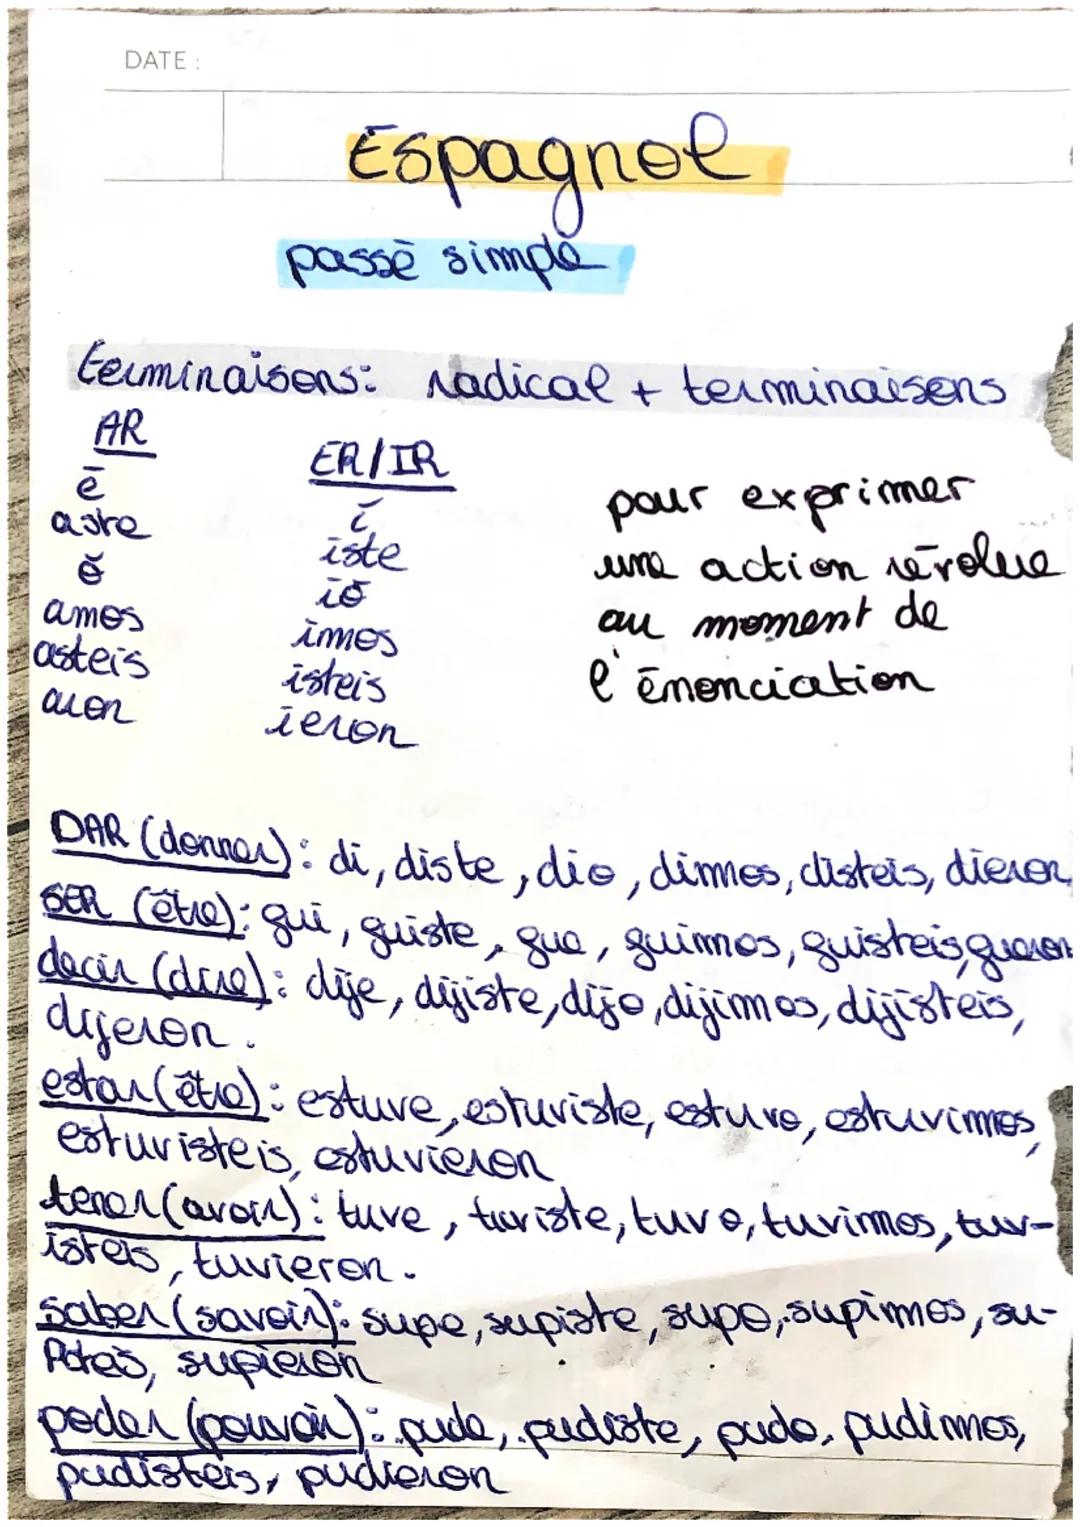 DATE :
Espagnol
passé simple
terminaisons: radical + terminaisons
AR
é
aste
ó
amos
asteis
aron
ER/IR
í
iste
ió
imos
isteis
ieron
pour exprimer
une action révolue
au moment de
l'énonciation
DAR (donner): di, diste, dio, dimos, disteis, dieron
SER (être): gui, guiste, gue, guimos, guisteis, gueron
decir (dire): dije, dijiste, dijo, dijimos, dijisteis,
dijeron.
estar (être): estuve, estuviste, estuvo, estuvimos,
estuvisteis, estuvieron
tener (avoir): tuve, tuviste, tuvo, tuvimos, tuv-
isteis, tuvieron.
saber (savoir): supe, supiste, supo, supimos, su-
supieron
poder (pouvoir): pude, pudiste, pudo, pudimos,
pudisteis, pudieron